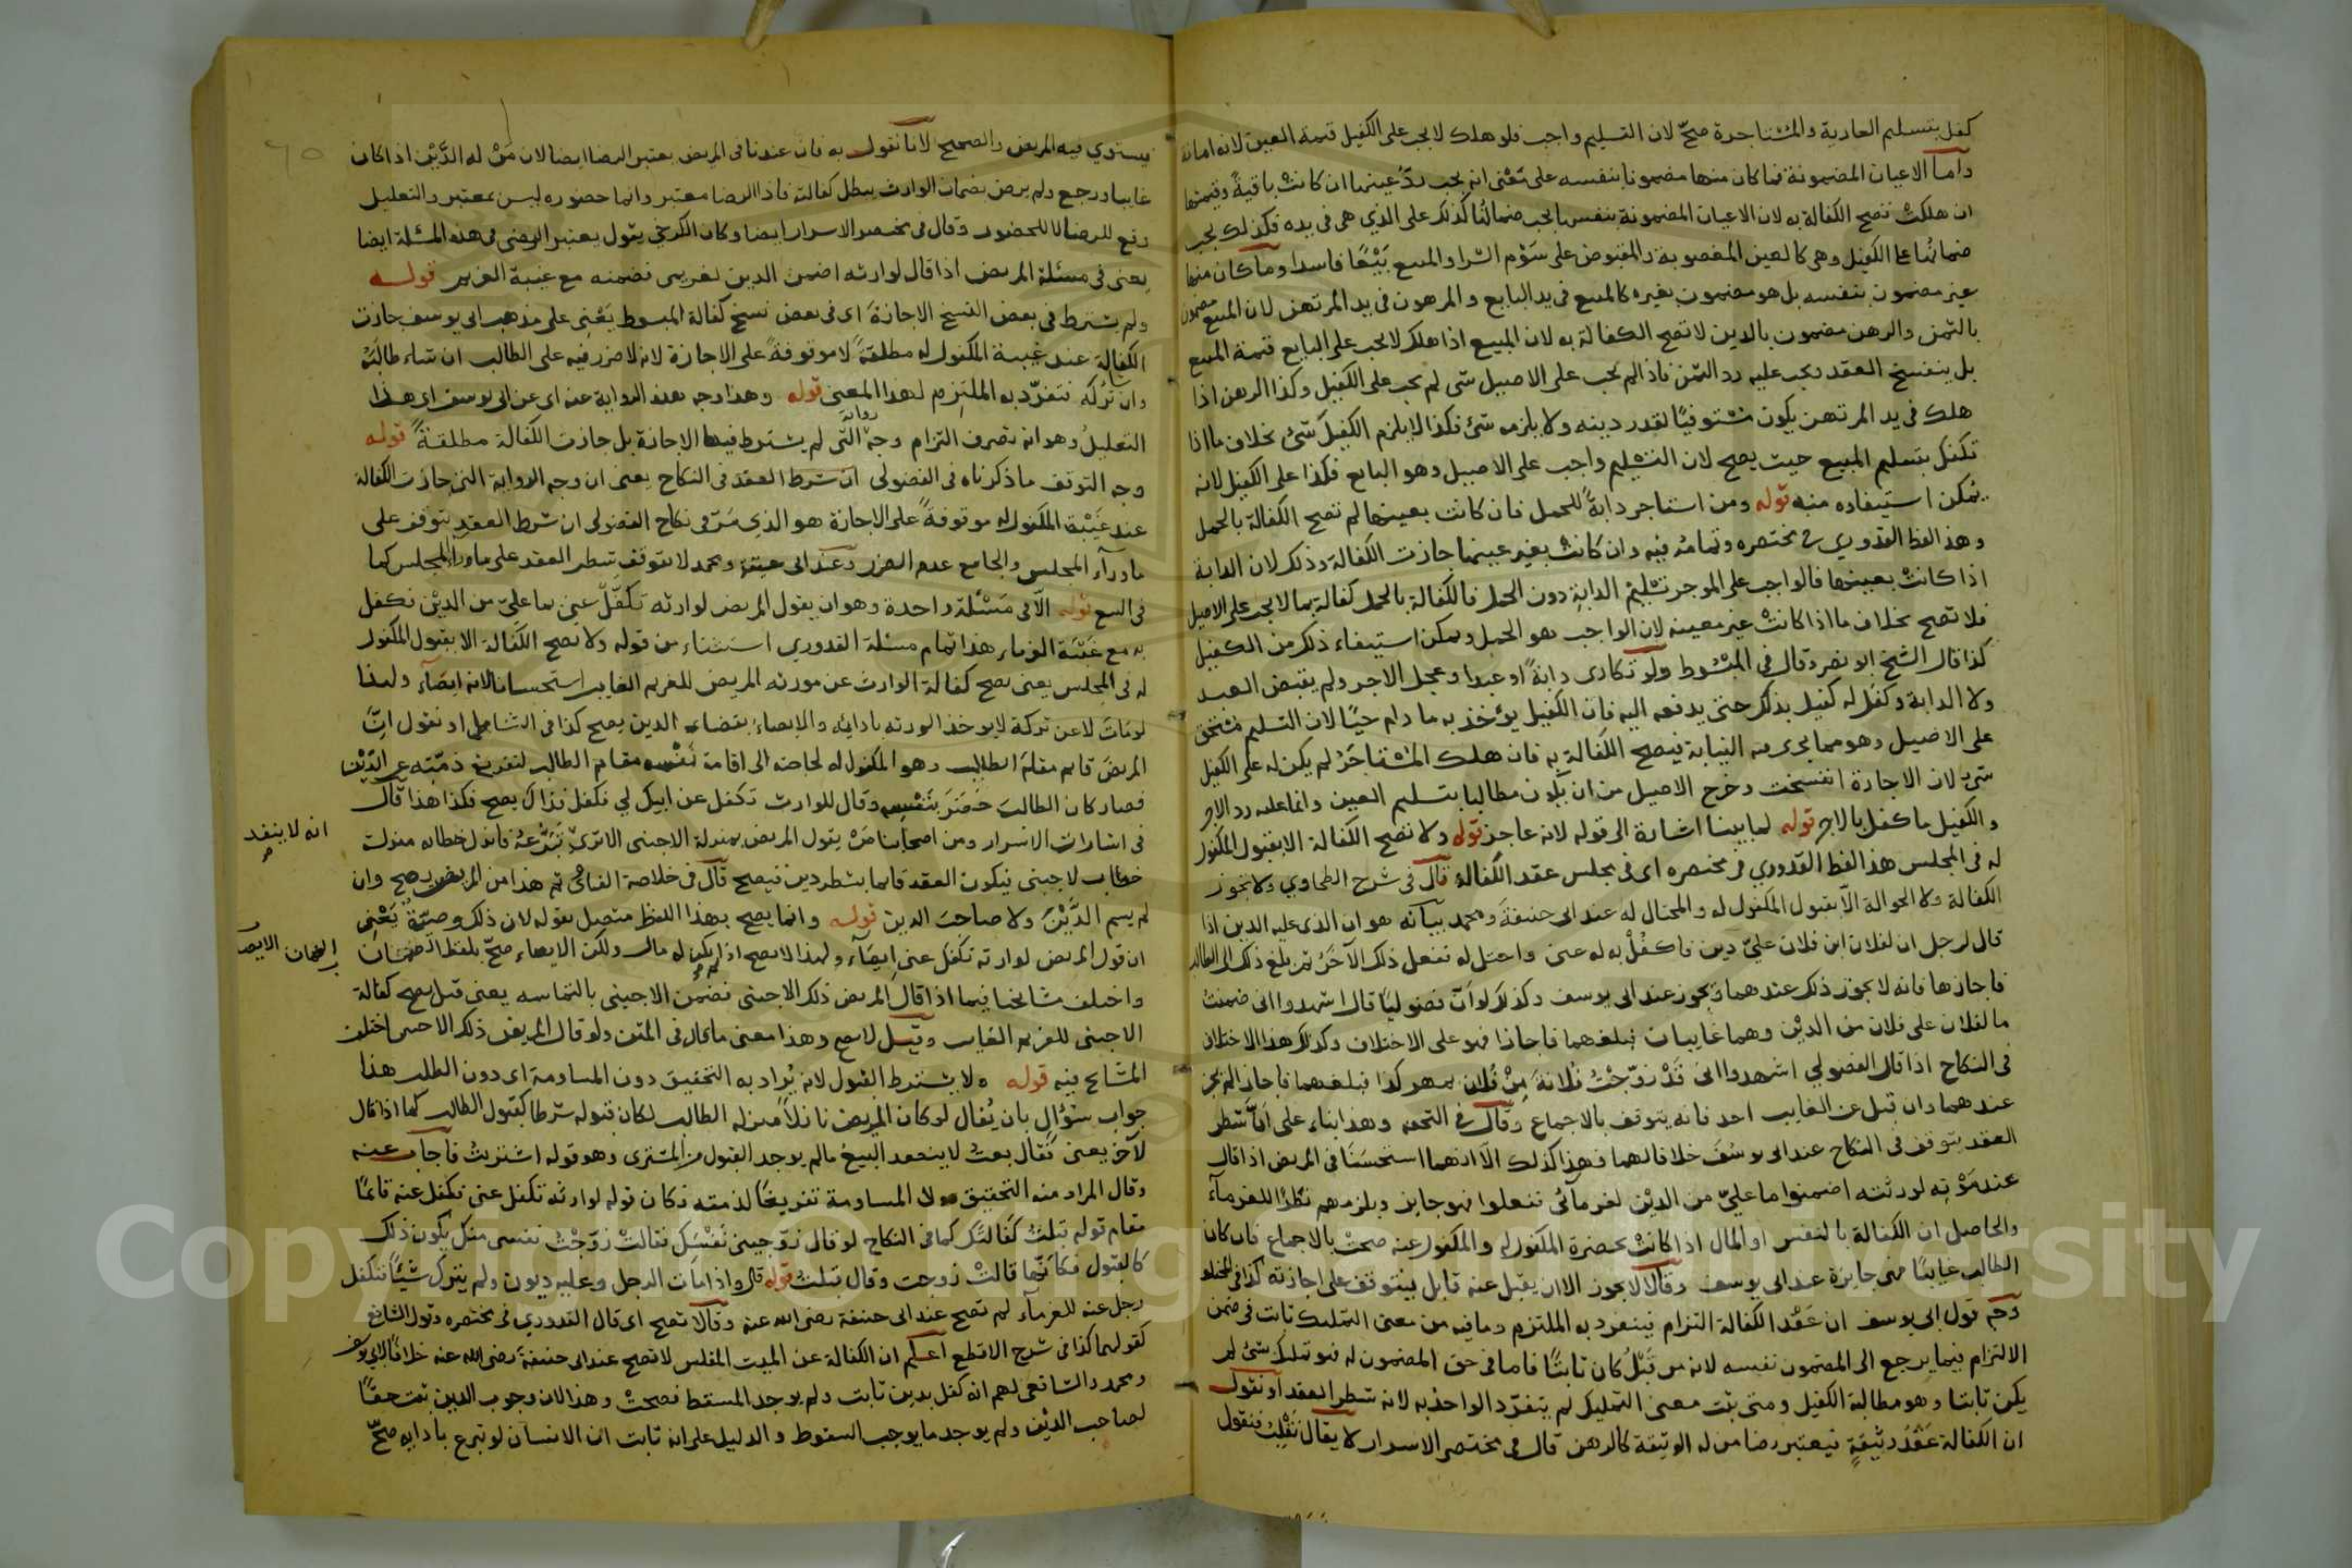 كفل بتسليم العارية والمستاجرة صح لان التسليم واجب فلو هلك لا يجب على الكفيل قيمة العين لانه امانة
واما الاعيان المضمونة فما كان منها مضمونا بنفسه على معنى انه يجب رد عينها ان كانت باقية وقيمتها
ان هلكت تصح الكفالة به لان الاعيان المضمونة بنفسها يجب ضمانها كذلك على الذي هي في يده فكذلك يجب
ضمانها على الكفيل وهي كالعين المغصوبة والمقبوض على سوم الشرا والمبيع بيعا فاسدا وما كان منها
غير مضمون بنفسه بل هو مضمون بغيره كالمبيع في يد البايع والمرهون في يد المرتهن لان المبيع مضمون
بالثمن والرهن مضمون بالدين لا تصح الكفالة به لان المبيع اذا هلك لا يجب على البايع قيمة المبيع
بل ينفسخ العقد ويجب عليه رد الثمن فاذا لم يجب على الاصيل شى لم يجب على الكفيل وكذا الرهن اذا
هلك في يد المرتهن يكون مستوفيا لقدر دينه ولا يلزمه شئ فكذا لا يلزم الكفيل شئ بخلاف ما اذا
تكفل بتسليم المبيع حيث يصح لان التسليم واجب على الاصيل وهو البايع فكذا على الكفيل لانه
يمكن استيفاده منه قوله ومن استاجر دابة للحمل فان كانت بعينها لم تصح الكفالة بالحمل
وهذا لفظ القدوري في مختصره وتمامه فيه وان كانت بغير عينها جازت الكفالة وذلك لان الدابة
اذا كانت بعينها فالواجب على الموجر تسليم الدابة دون الحمل فالكفالة بالحمل كفالة بما لا يجب على الاصيل
فلا تصح بخلاف ما اذا كانت غير معينة لان الواجب هو الحمل ويمكن استيفاء ذلك من الكفيل
كذا قال الشيخ ابو نصر وقال في المبسوط ولو تكارى دابة او عبدا وعجل الاجر ولم يقبض العبد
ولا الدابة وكفل له كفيل بذلك حتى يدفعه اليه فان الكفيل يؤخذ به ما دام حيا لان التسليم مستحق
على الاصيل وهو مما يجرى فيه النيابة فيصح الكفالة به فان هلك المستاجر لم يكن له على الكفيل
شى لان الاجارة انفسخت وخرج الاصيل من ان يكون مطالبا بتسليم العين وانما عليه رد الاجر
والكفيل ما كفل بالاجر قوله لما بينا اشارة الى قوله لانه عاجز قوله ولا تصح الكفالة الا بقبول المكفول
له في المجلس هذا لفظ القدوري في مختصره اى في مجلس عقد الكفالة قال في شرح الطحاوي ولا تجوز
الكفالة ولا الحوالة الا بقبول المكفول له والمحتال له عند ابى حنيفة ومحمد بيانه هو ان الذى عليه الدين اذا
قال لرجل ان لفلان ابن فلان علي دين فاكفل به له عنى واحتل له ففعل ذلك الآخر ثم بلغ ذلك الى الطالب
فاجازها فانه لا يجوز ذلك عندهما ويجوز عند ابى يوسف وكذلك لو ان فضوليا قال اشهدوا انى ضمنت
ما لفلان على فلان من الدين وهما غايبان فبلغهما فاجازا فهو على الاختلاف وكذلك هذا الاختلاف
في النكاح اذا قال الفضولي اشهدوا انى قد زوجت فلانة من فلان بمهر كذا فبلغهما فاجازا لم يجز
عندهما وان قبل عن الغايب احد فانه يتوقف بالاجماع وقال في التحفة وهذا بناء على ان شطر
العقد يتوقف في النكاح عند ابى يوسف خلافا لهما فهذا كذلك الا انهما استحسنا في المريض اذا قال
عند موته لورثته اضمنوا ما علي من الدين لغرمائى ففعلوا فهو جايز ويلزمهم نظرا للغرماء
والحاصل ان الكفالة بالنفس او المال اذا كانت بحضرة المكفول له والمكفول عنه صحت بالاجماع فان كان
الطالب غايبا فهى جايزة عند ابى يوسف وقالا لا يجوز الا ان يقبل عنه قابل فيتوقف على اجازته كذا في المختلف
وجه قول ابى يوسف ان عقد الكفالة التزام فينفرد به الملتزم وما فيه من معنى التمليك ثابت في ضمن
الالتزام فيما يرجع الى المضمون نفسه لانه من قبل كان ثابتا فاما في حق المضمون له فهو تمليك شئ لم
يكن ثابتا وهو مطالبة الكفيل ومتى ثبت معنى التمليك لم يتفرد الواحد به لانه شطر العقد او نقول
ان الكفالة عقد وثيقة فيعتبر رضا من له الوثيقة كالرهن قال في مختصر الاسرار لا يقال فنقول
فيستوي فيه المريض والصحيح لانا نقول به فان عندنا في المريض يعتبر الرضا ايضا لان من له الدين اذا كان
غايبا ورجع ولم يرض بضمان الوارث يبطل كفالته فاذا الرضا معتبر وانما حضوره ليس بمعتبر والتعليل
وقع للرضا لا للحضور وقال في مختصر الاسرار ايضا وكان الكرخي يقول يعتبر الرضى في هذه المسئلة ايضا
يعنى في مسئلة المريض اذا قال لوارثه اضمن الدين لغريمى فضمنه مع غيبة الغريم قوله
ولم يشترط في بعض النسخ الاجازة اى في بعض نسخ كفالة المبسوط يعنى على مذهب ابى يوسف جازت
الكفالة عند غيبة المكفول له مطلقة لا موقوفة على الاجازة لانه لا ضرر فيه على الطالب ان شاء طالبه
وان شاء تركه فتفرد به الملتزم لهذا المعنى قوله وهذا وجه هذه الرواية عنه اى عن ابى يوسف اى هذا
التعليل وهو انه تصرف التزام وجه رواية التى لم يشترط فيها الاجازة بل جازت الكفالة مطلقة قوله
وجه التوقف ما ذكرناه في الفضولى ان شرط العقد في النكاح يعنى ان وجه الرواية التى جازت الكفالة
عند غيبة المكفول له موقوفة على الاجازة هو الذي مر في نكاح الفضولى ان شرط العقد يتوقف على
ما وراء المجلس والجامع عدم الضرر وعند ابى حنيفة ومحمد لا يتوقف شطر العقد على ما وراء المجلس كما
في البيع قوله الا في مسئلة واحدة وهو ان يقول المريض لوارثه تكفل عنى بما علي من الدين فكفل
به مع غيبة الغرماء هذا تمام مسئلة القدوري استثناء من قوله ولا تصح الكفالة الا بقبول المكفول
له في المجلس يعنى تصح كفالة الوارث عن مورثه المريض للغريم الغايب استحسانا لانه ايصاء ولهذا
لو مات لا عن تركة لا يوخذ الورثة بادائه والايصاء بقضاء الدين يصح كذا في الشامل او نقول ان
المريض قايم مقام الطالب وهو المكفول له لحاجته الى اقامة نفسه مقام الطالب لتفريغ ذمته عن الدين
فصار كان الطالب حضر بنفسه وقال للوارث تكفل عن ابيك لي فكفل فذاك يصح فكذا هذا قال
في اشارات الاسرار ومن اصحابنا من يقول المريض بمنزلة الاجنبى الا ترى تبرعه فانزل خطابه منزلة
انه لا ينفد
خطاب لاجنبى فيكون العقد قائما بشطرين فيصح قال في خلاصة الفتاوى ثم هذا من المريض يصح وان
لم يسم الدين ولا صاحب الدين قوله وانما يصح بهذا اللفظ متصل بقوله لان ذلك وصية يعنى
ان قول المريض لوارثه تكفل عنى ايصاء ولهذا لا يصح اذا لم يكن له مال ولكن الايصاء صح بلفظ الضمان
واختلف مشايخنا فيما اذا قال المريض ذلك لاجنبى فضمن الاجنبى بالتماسه يعنى قيل يصح كفالة
الاجنبى للغريم الغايب وقيل لا يصح وهذا معنى ما قال في المتن ولو قال المريض ذلك لاجنبى اختلف
المشايخ فيه قوله ولا يشترط القبول لانه يراد به التحقيق دون المساومة اى دون الطلب هذا
جواب سؤال بان يقال لو كان المريض نازلا منزلة الطالب لكان قبوله شرطا كقبول الطالب كما اذا قال
لآخر يعنى فقال بعت لا ينعقد البيع ما لم يوجد القبول من المشترى وهو قوله اشتريت فاجاب عنه
وقال المراد منه التحقيق لا المساومة تفريغا لذمته فكان قوله لوارثه تكفل عنى فكفل عنه قائما
مقام قوله قبلت كفالتك كما في النكاح لو قال زوجينى نفسك فقالت زوجت نفسى منك يكون ذلك
كالقبول فكانها قالت زوجت وقال قبلت قوله قال واذا مات الرجل وعليه ديون ولم يترك شيئا فتكفل
رجل عنه للغرماء لم تصح عند ابى حنيفة رضى الله عنه وقالا تصح اى قال القدوري في مختصره وقول الشافعى
كقولهما كذا في شرح الاقطع اعلم ان الكفالة عن الميت المفلس لا تصح عند ابى حنيفة رضى الله عنه خلافا لابى يوسف
ومحمد والشافعى لهم انه كفل بدين ثابت ولم يوجد المسقط فصحت وهذا لان وجوب الدين ثبت حقا
لصاحب الدين ولم يوجد ما يوجب السقوط والدليل على انه ثابت ان الانسان لو تبرع بادايه صح
Copyright © King Saud University